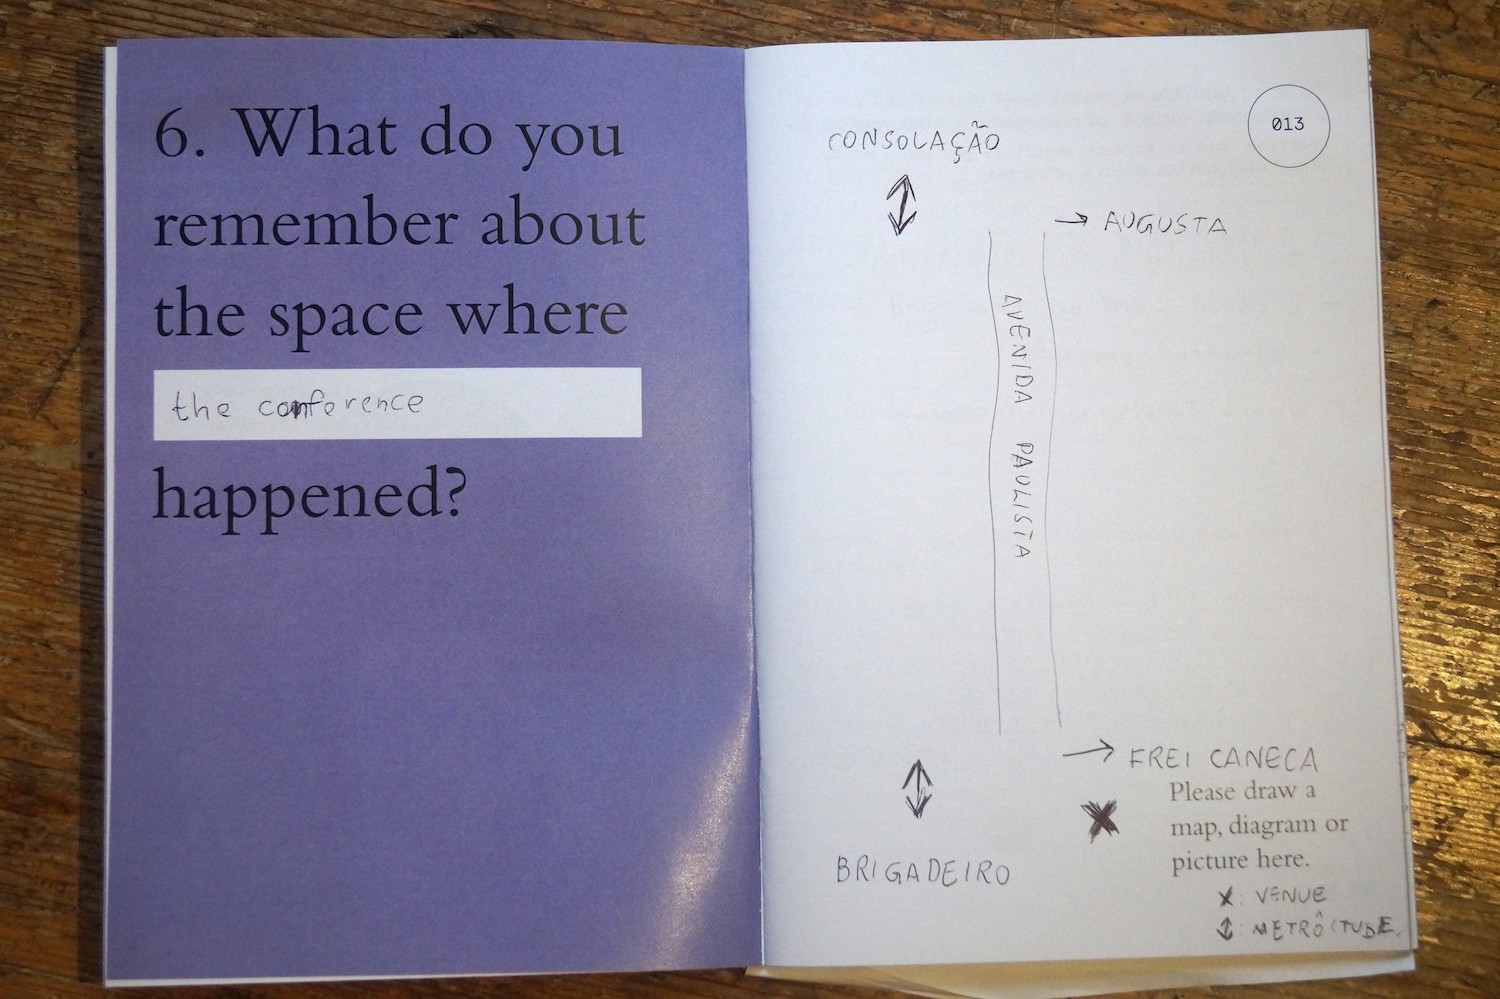 6. What do you
remember about
the space where
the conference
happened?
013
CONSOLAÇÃO
AUGUSTA
AVENIDA PAULISTA
FREI CANECA
Please draw a
map, diagram or
picture here.
BRIGADEIRO
X: VENUE
↕: METRÔ (TUBE)